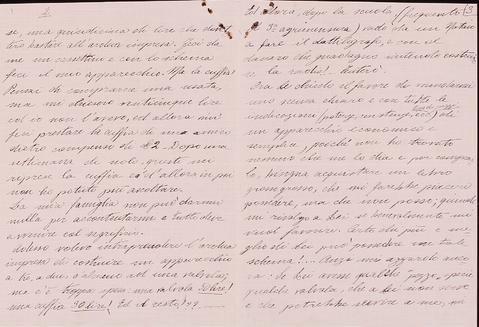 2
so, ma quindicina di lire che
bastare all'ardua impresa. Feci da
me un cassettino e con lo schema
feci il mio apparecchio. Ma la cuffia?
Pensai di comprarne una usata,
ma mi chiesero venticinque lire
ed io non l'avevo, ed allora mi
feci prestare la cuffia da un amico
dietro compenso di £2. Dopo una
settimana di nolo, questi mi
riprese la cuffia ed allora in poi
non ho potuto più ascoltare.
La mia famiglia non può darmi
nulla per accontentarmi e tutto deve
avvenire col segreto.
Adesso volevo intraprendere l'ardua
impresa di costruire un apparecchio
a tre, a due, o almeno ad una valvola;
ma c'è troppa spesa: una valvola 30 lire!
una cuffia 30 lire! Ed il resto???
3
dopo la scuola (frequento
la 3ª) vado da un
a fare il dattilografo, e con il
danaro che guadagno intendo costruire
la radio!
Ora Le chiedo il favore di mandarmi
uno schema chiaro e con tutte le
indicazioni di
un apparecchio economico e
semplice, poiché non ho trovato
nessuno che me lo dia e per comprarlo,
bisogna acquistare un libro
grossissimo, che mi farebbe piacere
possedere, ma che non posso; quindi
mi rivolgo a Lei se benevolmente mi
vuol favorire. Certo che più e meglio
di Lei può possedere un tale
schema!... Anzi mi azzardo ancora:
se Lei avesse qualche pezzo, qualche
valvola, che a Lei non serve
e che potrebbe servire a me, mi